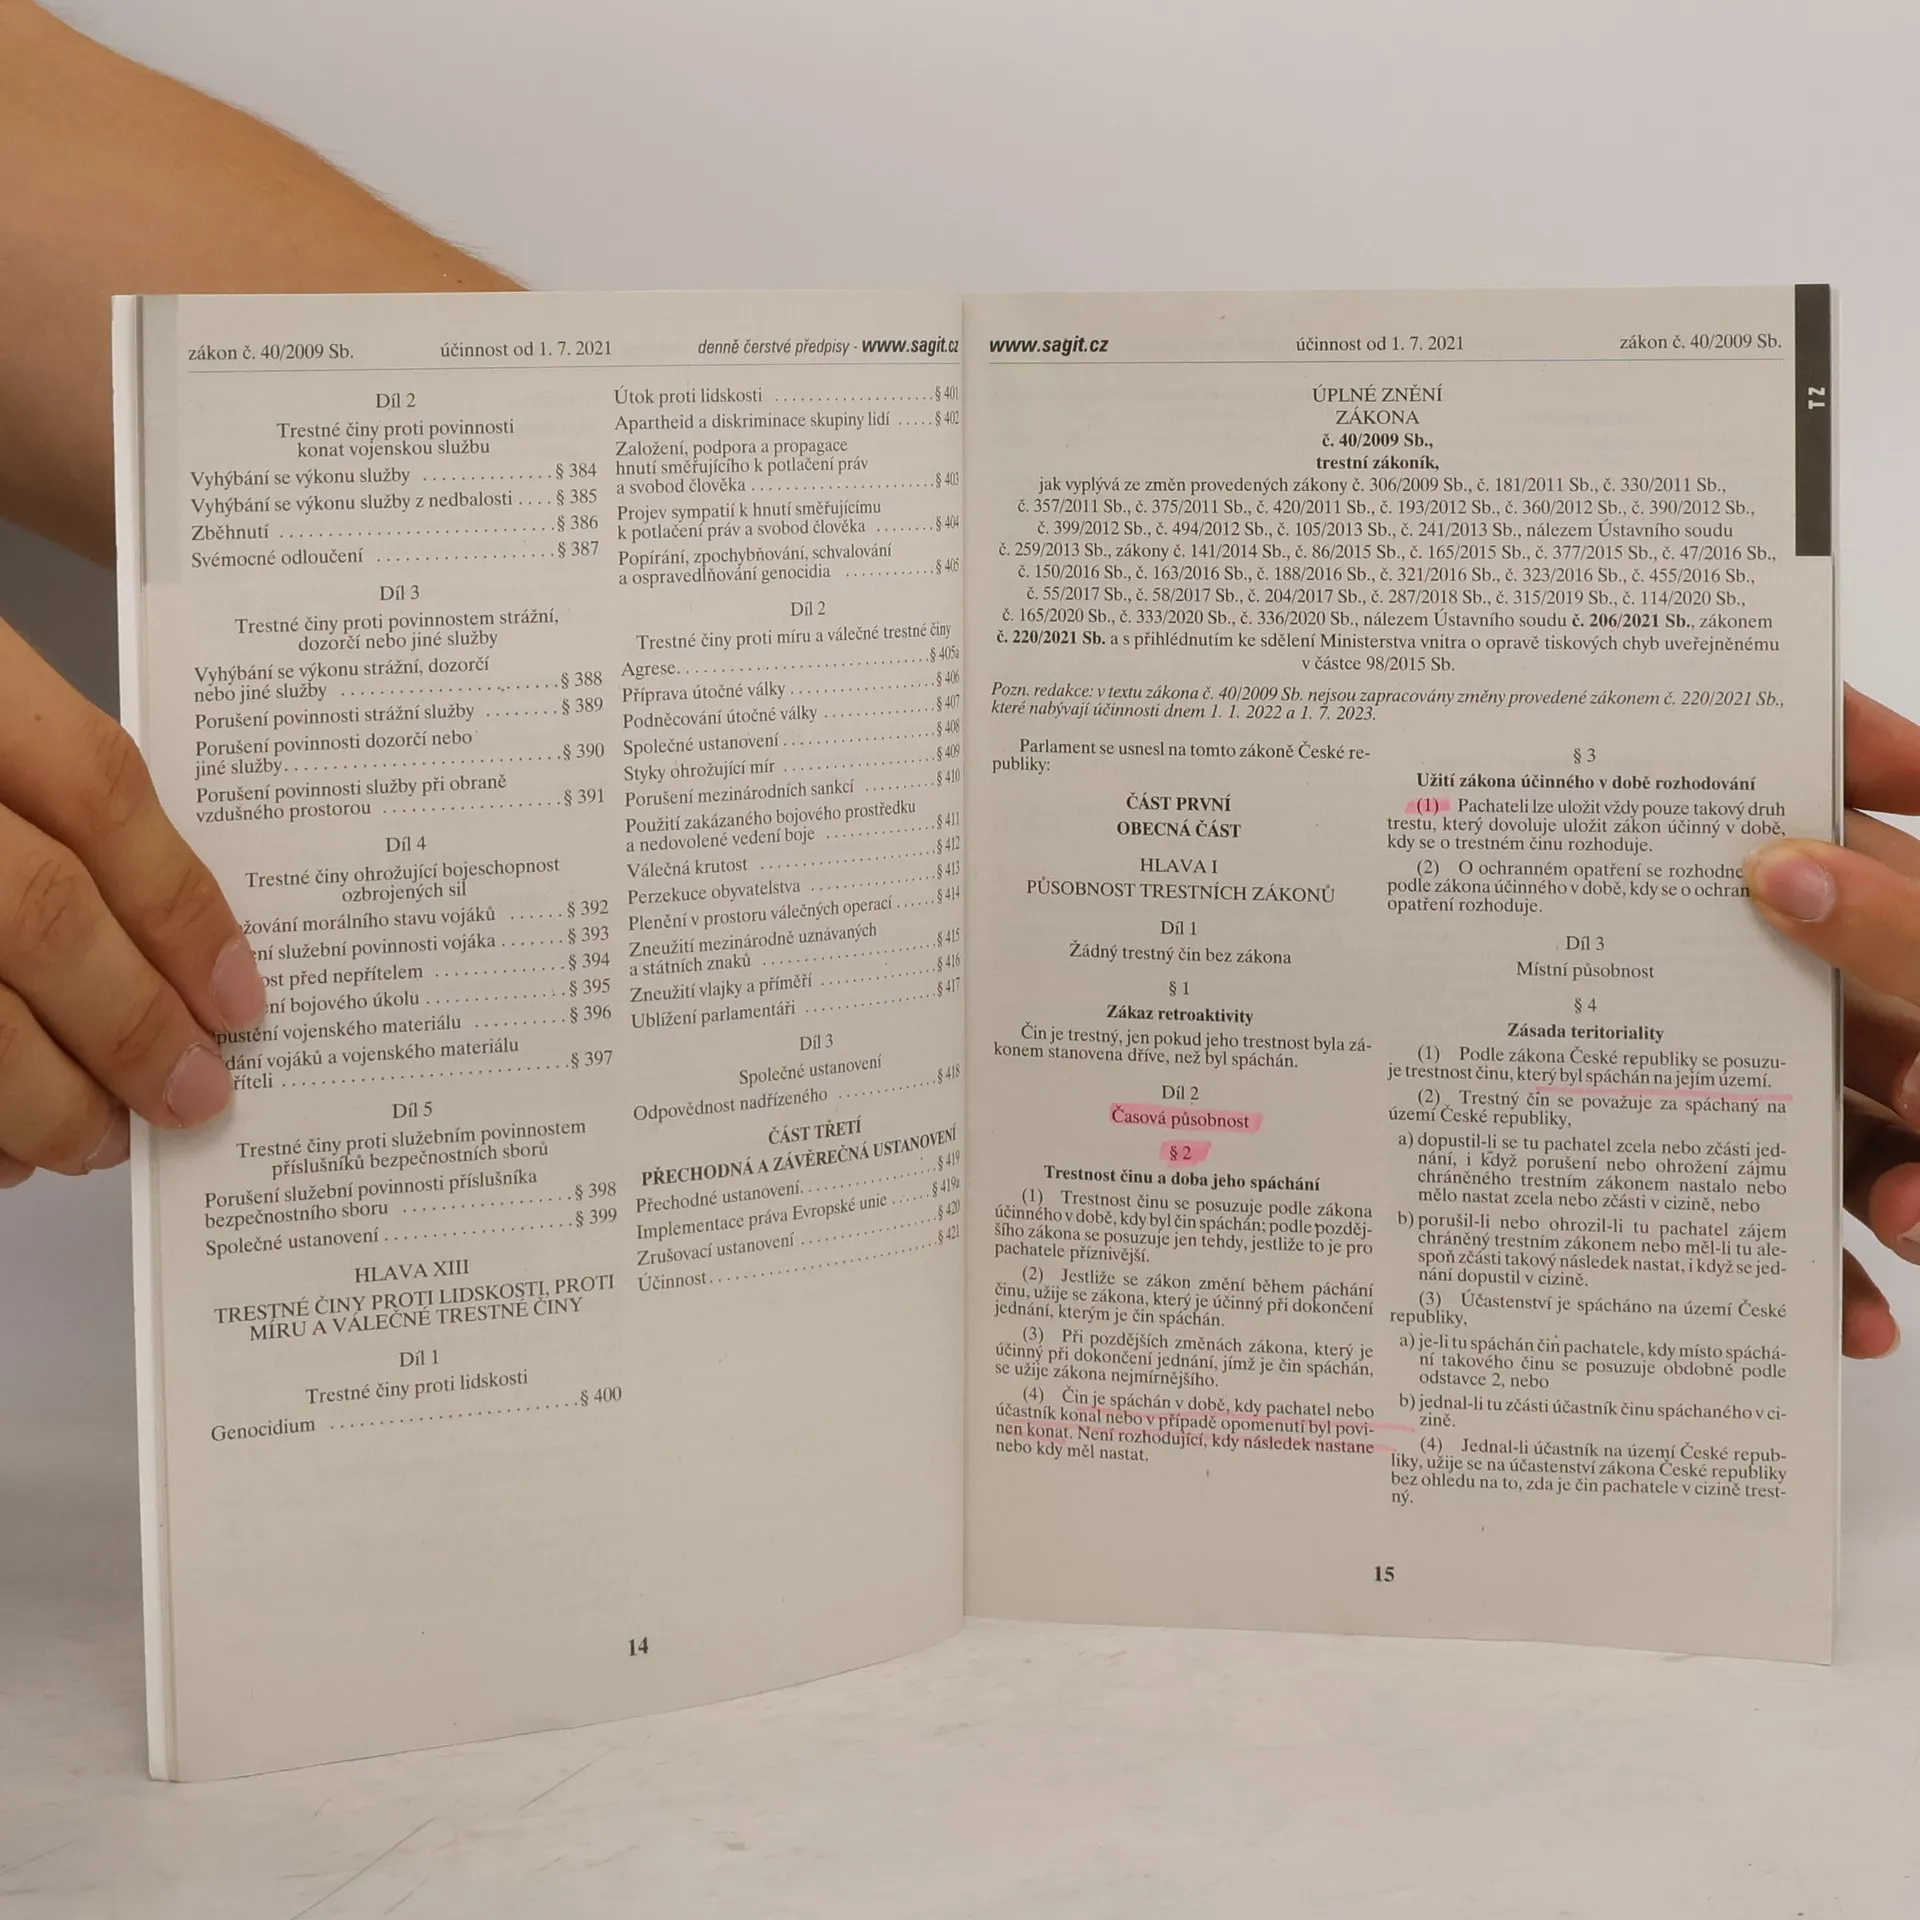 zákon č. 40/2009 Sb. účinnost od 1. 7. 2021 denně čerstvé předpisy - www.sagit.cz
Díl 2
Trestné činy proti povinnosti
konat vojenskou službu
Vyhýbání se výkonu služby ............. § 384
Vyhýbání se výkonu služby z nedbalosti .... § 385
Zběhnutí ........................... § 386
Svémocné odloučení ................. § 387
Díl 3
Trestné činy proti povinnostem strážní,
dozorčí nebo jiné služby
Vyhýbání se výkonu strážní, dozorčí
nebo jiné služby ..................... § 388
Porušení povinnosti strážní služby ........ § 389
Porušení povinnosti dozorčí nebo
jiné služby........................... § 390
Porušení povinnosti služby při obraně
vzdušného prostorou ................. § 391
Díl 4
Trestné činy ohrožující bojeschopnost
ozbrojených sil
morálního stavu vojáků ...... § 392
služební povinnosti vojáka ....... § 393
před nepřítelem ............. § 394
bojového úkolu .............. § 395
vojenského materiálu .......... § 396
vojáků a vojenského materiálu
............................. § 397
Díl 5
Trestné činy proti služebním povinnostem
příslušníků bezpečnostních sborů
Porušení služební povinnosti příslušníka
bezpečnostního sboru ................ § 398
Společné ustanovení .................. § 399
HLAVA XIII
TRESTNÉ ČINY PROTI LIDSKOSTI, PROTI
MÍRU A VÁLEČNÉ TRESTNÉ ČINY
Díl 1
Trestné činy proti lidskosti
Genocidium ......................... § 400
Útok proti lidskosti .................. § 401
Apartheid a diskriminace skupiny lidí ..... § 402
Založení, podpora a propagace
hnutí směřujícího k potlačení práv
a svobod člověka ..................... § 403
Projev sympatií k hnutí směřujícímu
k potlačení práv a svobod člověka ........ § 404
Popírání, zpochybňování, schvalování
a ospravedlňování genocidia ............ § 405
Díl 2
Trestné činy proti míru a válečné trestné činy
Agrese............................. § 405a
Příprava útočné války ................. § 406
Podněcování útočné války .............. § 407
Společné ustanovení .................. § 408
Styky ohrožující mír .................. § 409
Porušení mezinárodních sankcí .......... § 410
Použití zakázaného bojového prostředku
a nedovolené vedení boje .............. § 411
Válečná krutost ..................... § 412
Perzekuce obyvatelstva ............... § 413
Plenění v prostoru válečných operací ...... § 414
Zneužití mezinárodně uznávaných
a státních znaků ..................... § 415
Zneužití vlajky a příměří ............... § 416
Ublížení parlamentáři ................. § 417
Díl 3
Společné ustanovení
Odpovědnost nadřízeného .............. § 418
ČÁST TŘETÍ
PŘECHODNÁ A ZÁVĚREČNÁ USTANOVENÍ
Přechodné ustanovení................. § 419
Implementace práva Evropské unie ...... § 419a
Zrušovací ustanovení ................. § 420
Účinnost............................ § 421
14
www.sagit.cz účinnost od 1. 7. 2021 zákon č. 40/2009 Sb.
TZ
ÚPLNÉ ZNĚNÍ
ZÁKONA
č. 40/2009 Sb.,
trestní zákoník,
jak vyplývá ze změn provedených zákony č. 306/2009 Sb., č. 181/2011 Sb., č. 330/2011 Sb.,
č. 357/2011 Sb., č. 375/2011 Sb., č. 420/2011 Sb., č. 193/2012 Sb., č. 360/2012 Sb., č. 390/2012 Sb.,
č. 399/2012 Sb., č. 494/2012 Sb., č. 105/2013 Sb., č. 241/2013 Sb., nálezem Ústavního soudu
č. 259/2013 Sb., zákony č. 141/2014 Sb., č. 86/2015 Sb., č. 165/2015 Sb., č. 377/2015 Sb., č. 47/2016 Sb.,
č. 150/2016 Sb., č. 163/2016 Sb., č. 188/2016 Sb., č. 321/2016 Sb., č. 323/2016 Sb., č. 455/2016 Sb.,
č. 55/2017 Sb., č. 58/2017 Sb., č. 204/2017 Sb., č. 287/2018 Sb., č. 315/2019 Sb., č. 114/2020 Sb.,
č. 165/2020 Sb., č. 333/2020 Sb., č. 336/2020 Sb., nálezem Ústavního soudu č. 206/2021 Sb., zákonem
č. 220/2021 Sb. a s přihlédnutím ke sdělení Ministerstva vnitra o opravě tiskových chyb uveřejněnému
v částce 98/2015 Sb.
Pozn. redakce: v textu zákona č. 40/2009 Sb. nejsou zapracovány změny provedené zákonem č. 220/2021 Sb.,
které nabývají účinnosti dnem 1. 1. 2022 a 1. 7. 2023.
Parlament se usnesl na tomto zákoně České re-
publiky:
ČÁST PRVNÍ
OBECNÁ ČÁST
HLAVA I
PŮSOBNOST TRESTNÍCH ZÁKONŮ
Díl 1
Žádný trestný čin bez zákona
§ 1
Zákaz retroaktivity
Čin je trestný, jen pokud jeho trestnost byla zá-
konem stanovena dříve, než byl spáchán.
Díl 2
Časová působnost
§ 2
Trestnost činu a doba jeho spáchání
(1) Trestnost činu se posuzuje podle zákona
účinného v době, kdy byl čin spáchán; podle pozděj-
šího zákona se posuzuje jen tehdy, jestliže to je pro
pachatele příznivější.
(2) Jestliže se zákon změní během páchání
činu, užije se zákona, který je účinný při dokončení
jednání, kterým je čin spáchán.
(3) Při pozdějších změnách zákona, který je
účinný při dokončení jednání, jímž je čin spáchán,
se užije zákona nejmírnějšího.
(4) Čin je spáchán v době, kdy pachatel nebo
účastník konal nebo v případě opomenutí byl povi-
nen konat. Není rozhodující, kdy následek nastane
nebo kdy měl nastat.
§ 3
Užití zákona účinného v době rozhodování
(1) Pachateli lze uložit vždy pouze takový druh
trestu, který dovoluje uložit zákon účinný v době,
kdy se o trestném činu rozhoduje.
(2) O ochranném opatření se rozhodne
podle zákona účinného v době, kdy se o
opatření rozhoduje.
Díl 3
Místní působnost
§ 4
Zásada teritoriality
(1) Podle zákona České republiky se posuzu-
je trestnost činu, který byl spáchán na jejím území.
(2) Trestný čin se považuje za spáchaný na
území České republiky,
a) dopustil-li se tu pachatel zcela nebo zčásti jed-
nání, i když porušení nebo ohrožení zájmu
chráněného trestním zákonem nastalo nebo
mělo nastat zcela nebo zčásti v cizině, nebo
b) porušil-li nebo ohrozil-li tu pachatel zájem
chráněný trestním zákonem nebo měl-li tu ale-
spoň zčásti takový následek nastat, i když se jed-
nání dopustil v cizině.
(3) Účastenství je spácháno na území České
republiky,
a) je-li tu spáchán čin pachatele, kdy místo spáchá-
ní takového činu se posuzuje obdobně podle
odstavce 2, nebo
b) jednal-li tu zčásti účastník činu spáchaného v ci-
zině.
(4) Jednal-li účastník na území České repub-
liky, užije se na účastenství zákona České republiky
bez ohledu na to, zda je čin pachatele v cizině trest-
ný.
15